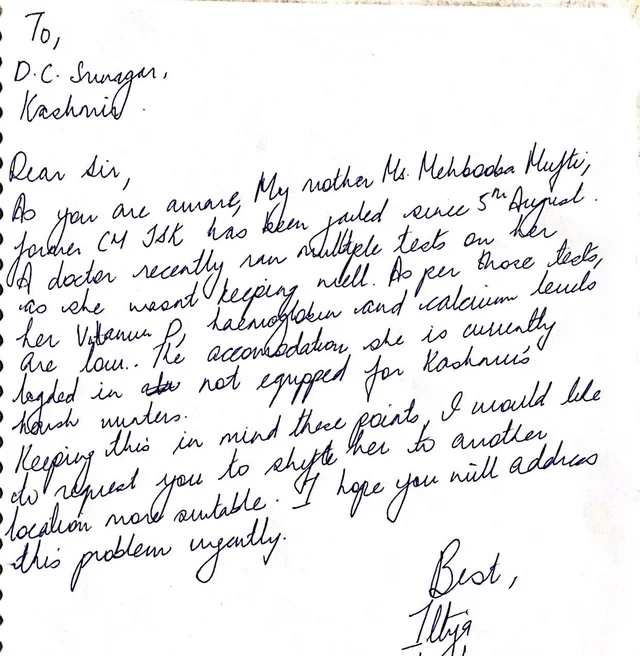 To,
D.C. Srinagar,
Kashmir.
Dear Sir,
As you are aware, My mother Ms. Mehbooba Mufti,
former CM J&K has been jailed since 5th August.
A doctor recently ran multiple tests on her
as she wasnt keeping well. As per those tests,
her Vitamin D, haemoglobin and calcium levels
are low.. The accomodation she is currently
lodged in not equipped for Kashmir's
harsh winters.
Keeping this in mind these points, I would like
to request you to shifte her to another
location more suitable. I hope you will address
this problem urgently.
Best,
Iltija